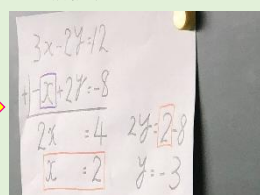 3x-2y=12
+) -x+2y=-8
2x =4
x =2
2y=2-8
y=-3